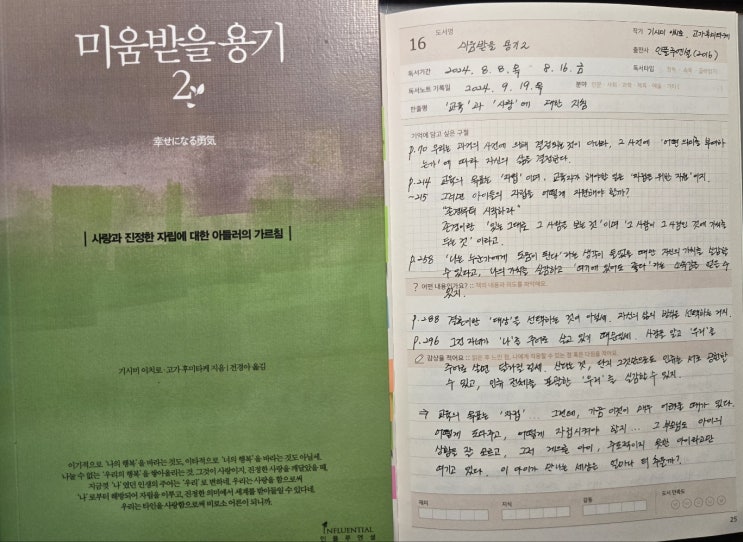 미움받을 용기
2
幸せになる勇気
사랑과 진정한 자립에 대한 아들러의 가르침
기시미 이치로 · 고가 후미타케 지음 | 전경아 옮김
이기적으로 '나의 행복'을 바라는 것도, 이타적으로 '너의 행복'을 바라는 것도 아닐세.
나눌 수 없는 '우리의 행복'을 쌓아올리는 것, 그것이 사랑이지. 진정한 사랑을 깨달았을 때,
지금껏 '나'였던 인생의 주어는 '우리'로 변하네. 우리는 사랑을 함으로써
'나'로부터 해방되어 자립을 이루고, 진정한 의미에서 세계를 받아들일 수 있다네.
우리는 타인을 사랑함으로써 비로소 어른이 되니까.
INFLUENTIAL
인플루엔셜
16
도서명
미움받을 용기2
작가 기시미 이치로, 고가후미타케
출판사 인플루엔셜(2016)
독서기간 2024. 8. 8. 목 - 8. 16. 금
독서타입
독서노트 기록일 2024. 9. 19. 목
분야 인문 · 사회 · 과학 · 예술 · 기타
한줄평 '교육'과 '사랑'에 대한 지침
기억에 담고 싶은 구절
p.70 우리는 과거의 사건에 의해 결정되는 것이 아니라, 그 사건에 '어떤 의미를 부여하
는가'에 따라 자신의 삶을 결정한다.
p.214 교육의 목표는 '자립'이며, 교육자가 해야할 일은 '자립을 위한 지원'이지.
~215 그러면 아이들의 자립을 어떻게 지원해야 할까?
"존경부터 시작하라"
존경이란 '있는 그대로 그 사람을 보는 것'이며 '그 사람이 그 사람인 것에 가치를
두는 것'이라고.
p.258 '나는 누군가에게 도움이 된다'라는 생각이 들었을 때만 자신의 가치를 실감할
수 있다고, 나의 가치를 실감하고 '여기에 있어도 좋다'라는 소속감을 얻을 수
있지.
? 어떤 내용인가요? :: 책의 내용과 의도를 파악해요.
p.288 결혼이란 '대상'을 선택하는 것이 아닐세. 자신의 삶의 방식을 선택하는 거지.
p.296 그건 자네가 '나'를 주어로 살고 있기 때문일세. 사랑을 알고 '우리'를
감상을 적어요
주어로 살면 달라진다네. 산다는 것, 단지 그것만으로도 인류는 서로 공헌할
수 있고, 인류 전체를 포괄한 '우리'를 실감할 수 있지.
⇒ 교육의 목표는 '자립'... 그런데, 가끔 이것이 매우 어려울 때가 있다.
어떻게 도와주고, 어떻게 자립시켜야 할지... 그 부모도 아이의
상황을 잘 모르고, 그저 게으른 아이, 주도적이지 못한 아이라고만
여기고 있다. 이 아이가 만나는 세상은 얼마나 더 추울까?
재미
지식
감동
도서 만족도
25